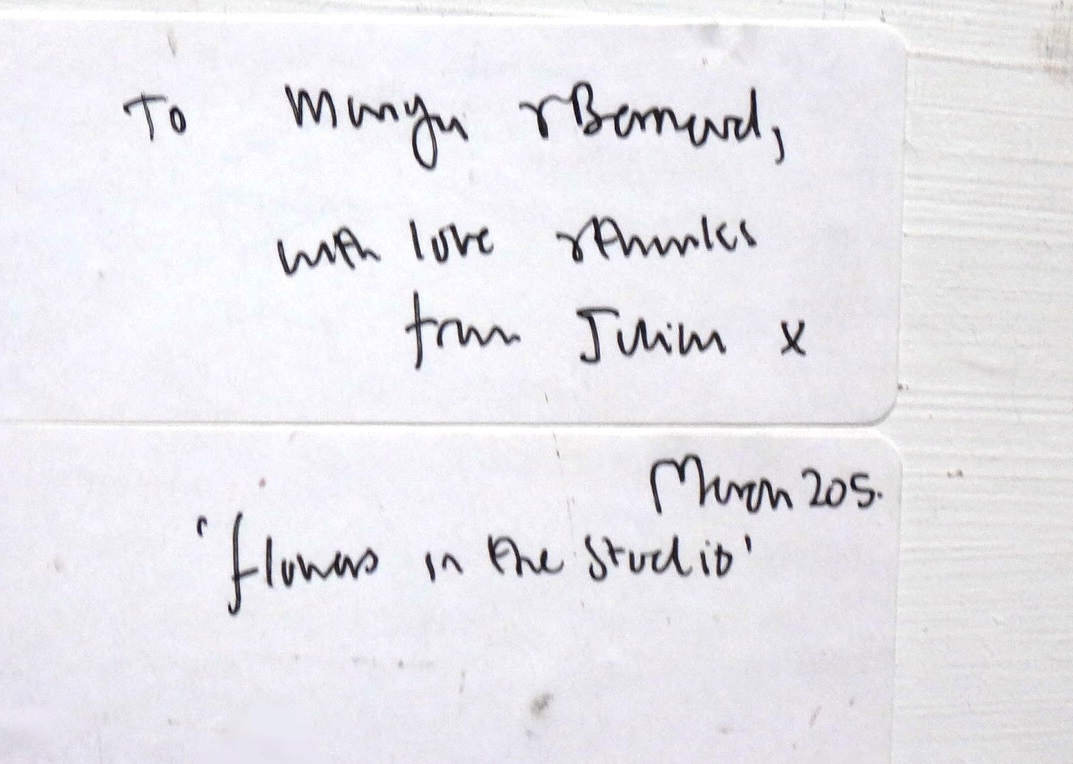 To Manya & Bernard,
with love & thanks
from Julian x
March 205.
'flowers in the studio'